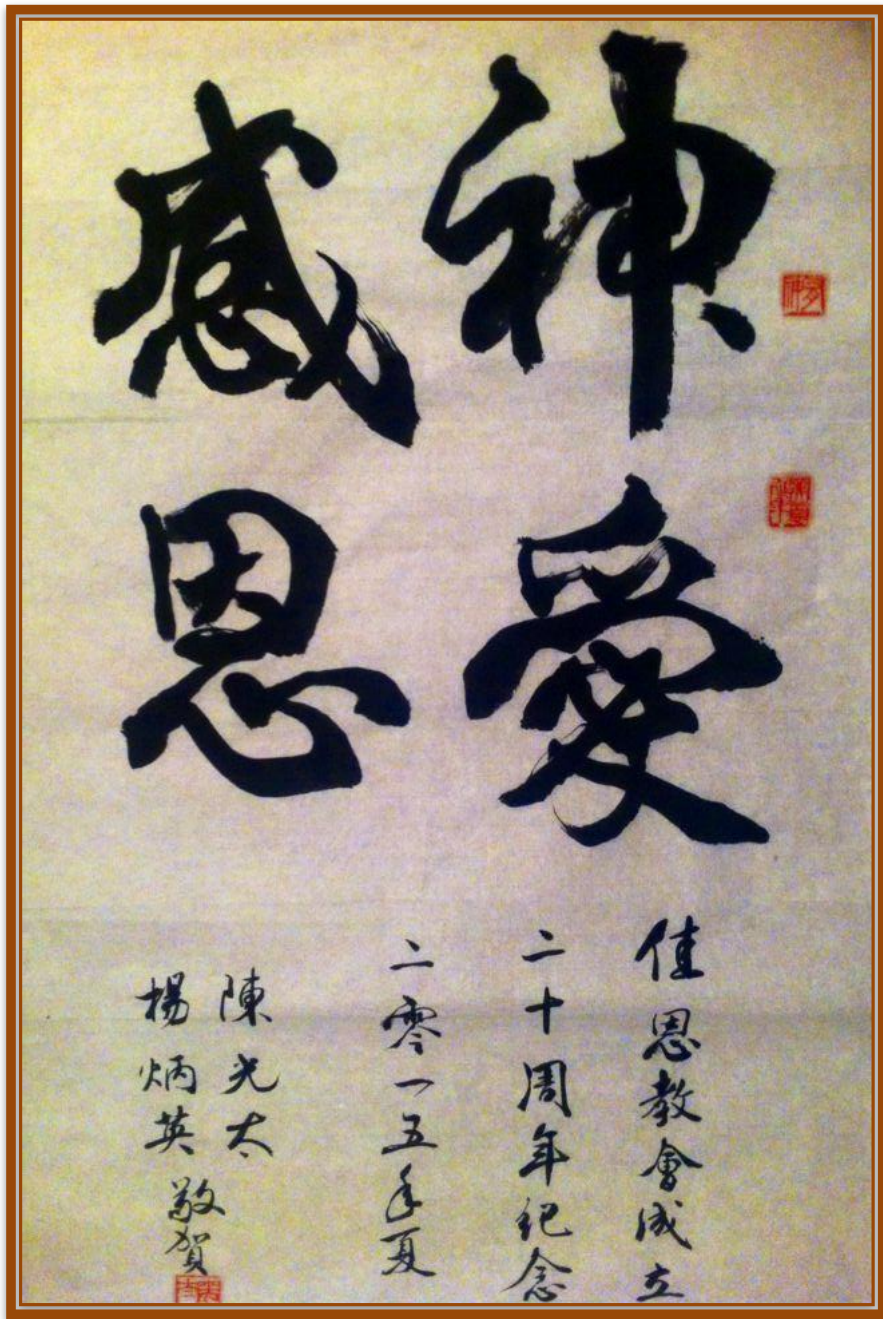 神愛
感恩
佳恩教會成立
二十周年紀念
二零一五年夏
陳光太
楊炳英
敬賀